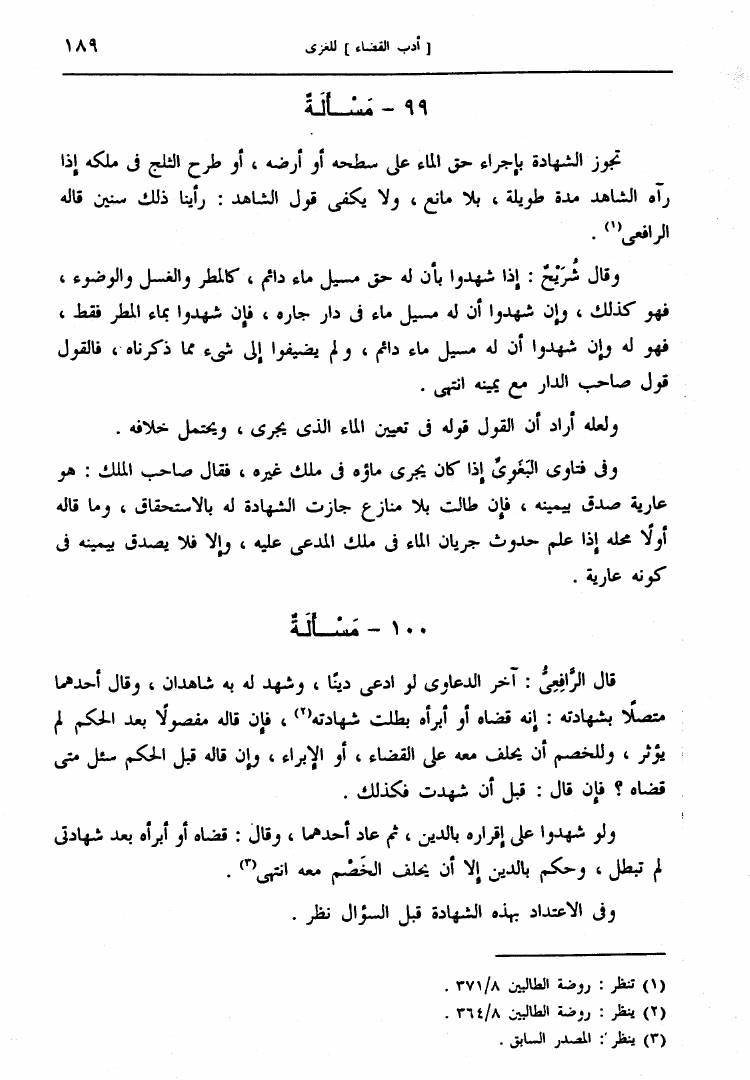 [ أدب القضاء ] للغزى
١٨٩
٩٩ - مَسْـــأَلَةٌ
تجوز الشهادة بإجراء حق الماء على سطحه أو أرضه ، أو طرح الثلج فى ملكه إذا
رآه الشاهد مدة طويلة ، بلا مانع ، ولا يكفى قول الشاهد : رأينا ذلك سنين قاله
الرافعى(١) .
وقال شُرَيْحٌ : إذا شهدوا بأن له حق مسيل ماء دائم ، كالمطر والغسل والوضوء ،
فهو كذلك ، وإن شهدوا أن له مسيل ماء فى دار جاره ، فإن شهدوا بماء المطر فقط ،
فهو له وإن شهدوا أن له مسيل ماء دائم ، ولم يضيفوا إلى شىء مما ذكرناه ، فالقول
قول صاحب الدار مع يمينه انتهى .
ولعله أراد أن القول قوله فى تعيين الماء الذى يجرى ، ويحتمل خلافه .
وفى فتاوى البَغَوِىِّ إذا كان يجرى ماؤه فى ملك غيره ، فقال صاحب الملك : هو
عارية صدق بيمينه ، فإن طالت بلا منازع جازت الشهادة له بالاستحقاق ، وما قاله
أولًا محله إذا علم حدوث جريان الماء فى ملك المدعى عليه ، وإلا فلا يصدق بيمينه فى
كونه عارية .
١٠٠ - مَسْـــأَلَةٌ
قال الرَّافِعِىُّ : آخر الدعاوى لو ادعى دينًا ، وشهد له به شاهدان ، وقال أحدهما
متصلًا بشهادته : إنه قضاه أو أبرأه بطلت شهادته(٢) ، فإن قاله مفصولًا بعد الحكم لم
يؤثر ، وللخصم أن يحلف معه على القضاء ، أو الإبراء ، وإن قاله قبل الحكم سئل متى
قضاه ؟ فإن قال : قبل أن شهدت فكذلك .
ولو شهدوا على إقراره بالدين ، ثم عاد أحدهما ، وقال : قضاه أو أبرأه بعد شهادتى
لم تبطل ، وحكم بالدين إلا أن يحلف الخَصْم معه انتهى(٣) .
وفى الاعتداد بهذه الشهادة قبل السؤال نظر .
(١) تنظر : روضة الطالبين ٣٧١/٨ .
(٢) ينظر : روضة الطالبين ٣٦٤/٨ .
(٣) ينظر : المصدر السابق .